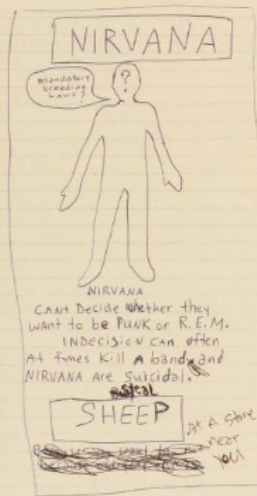 NIRVANA
mandatory
breeding
LAWS?
?
NIRVANA
CANT Decide whether they
WANT to be PUNK or R.E.M.
INDECISION CAN often
At times Kill A band, and
NIRVANA ARE suicidal.
SHEEP
At A store
near
YOU